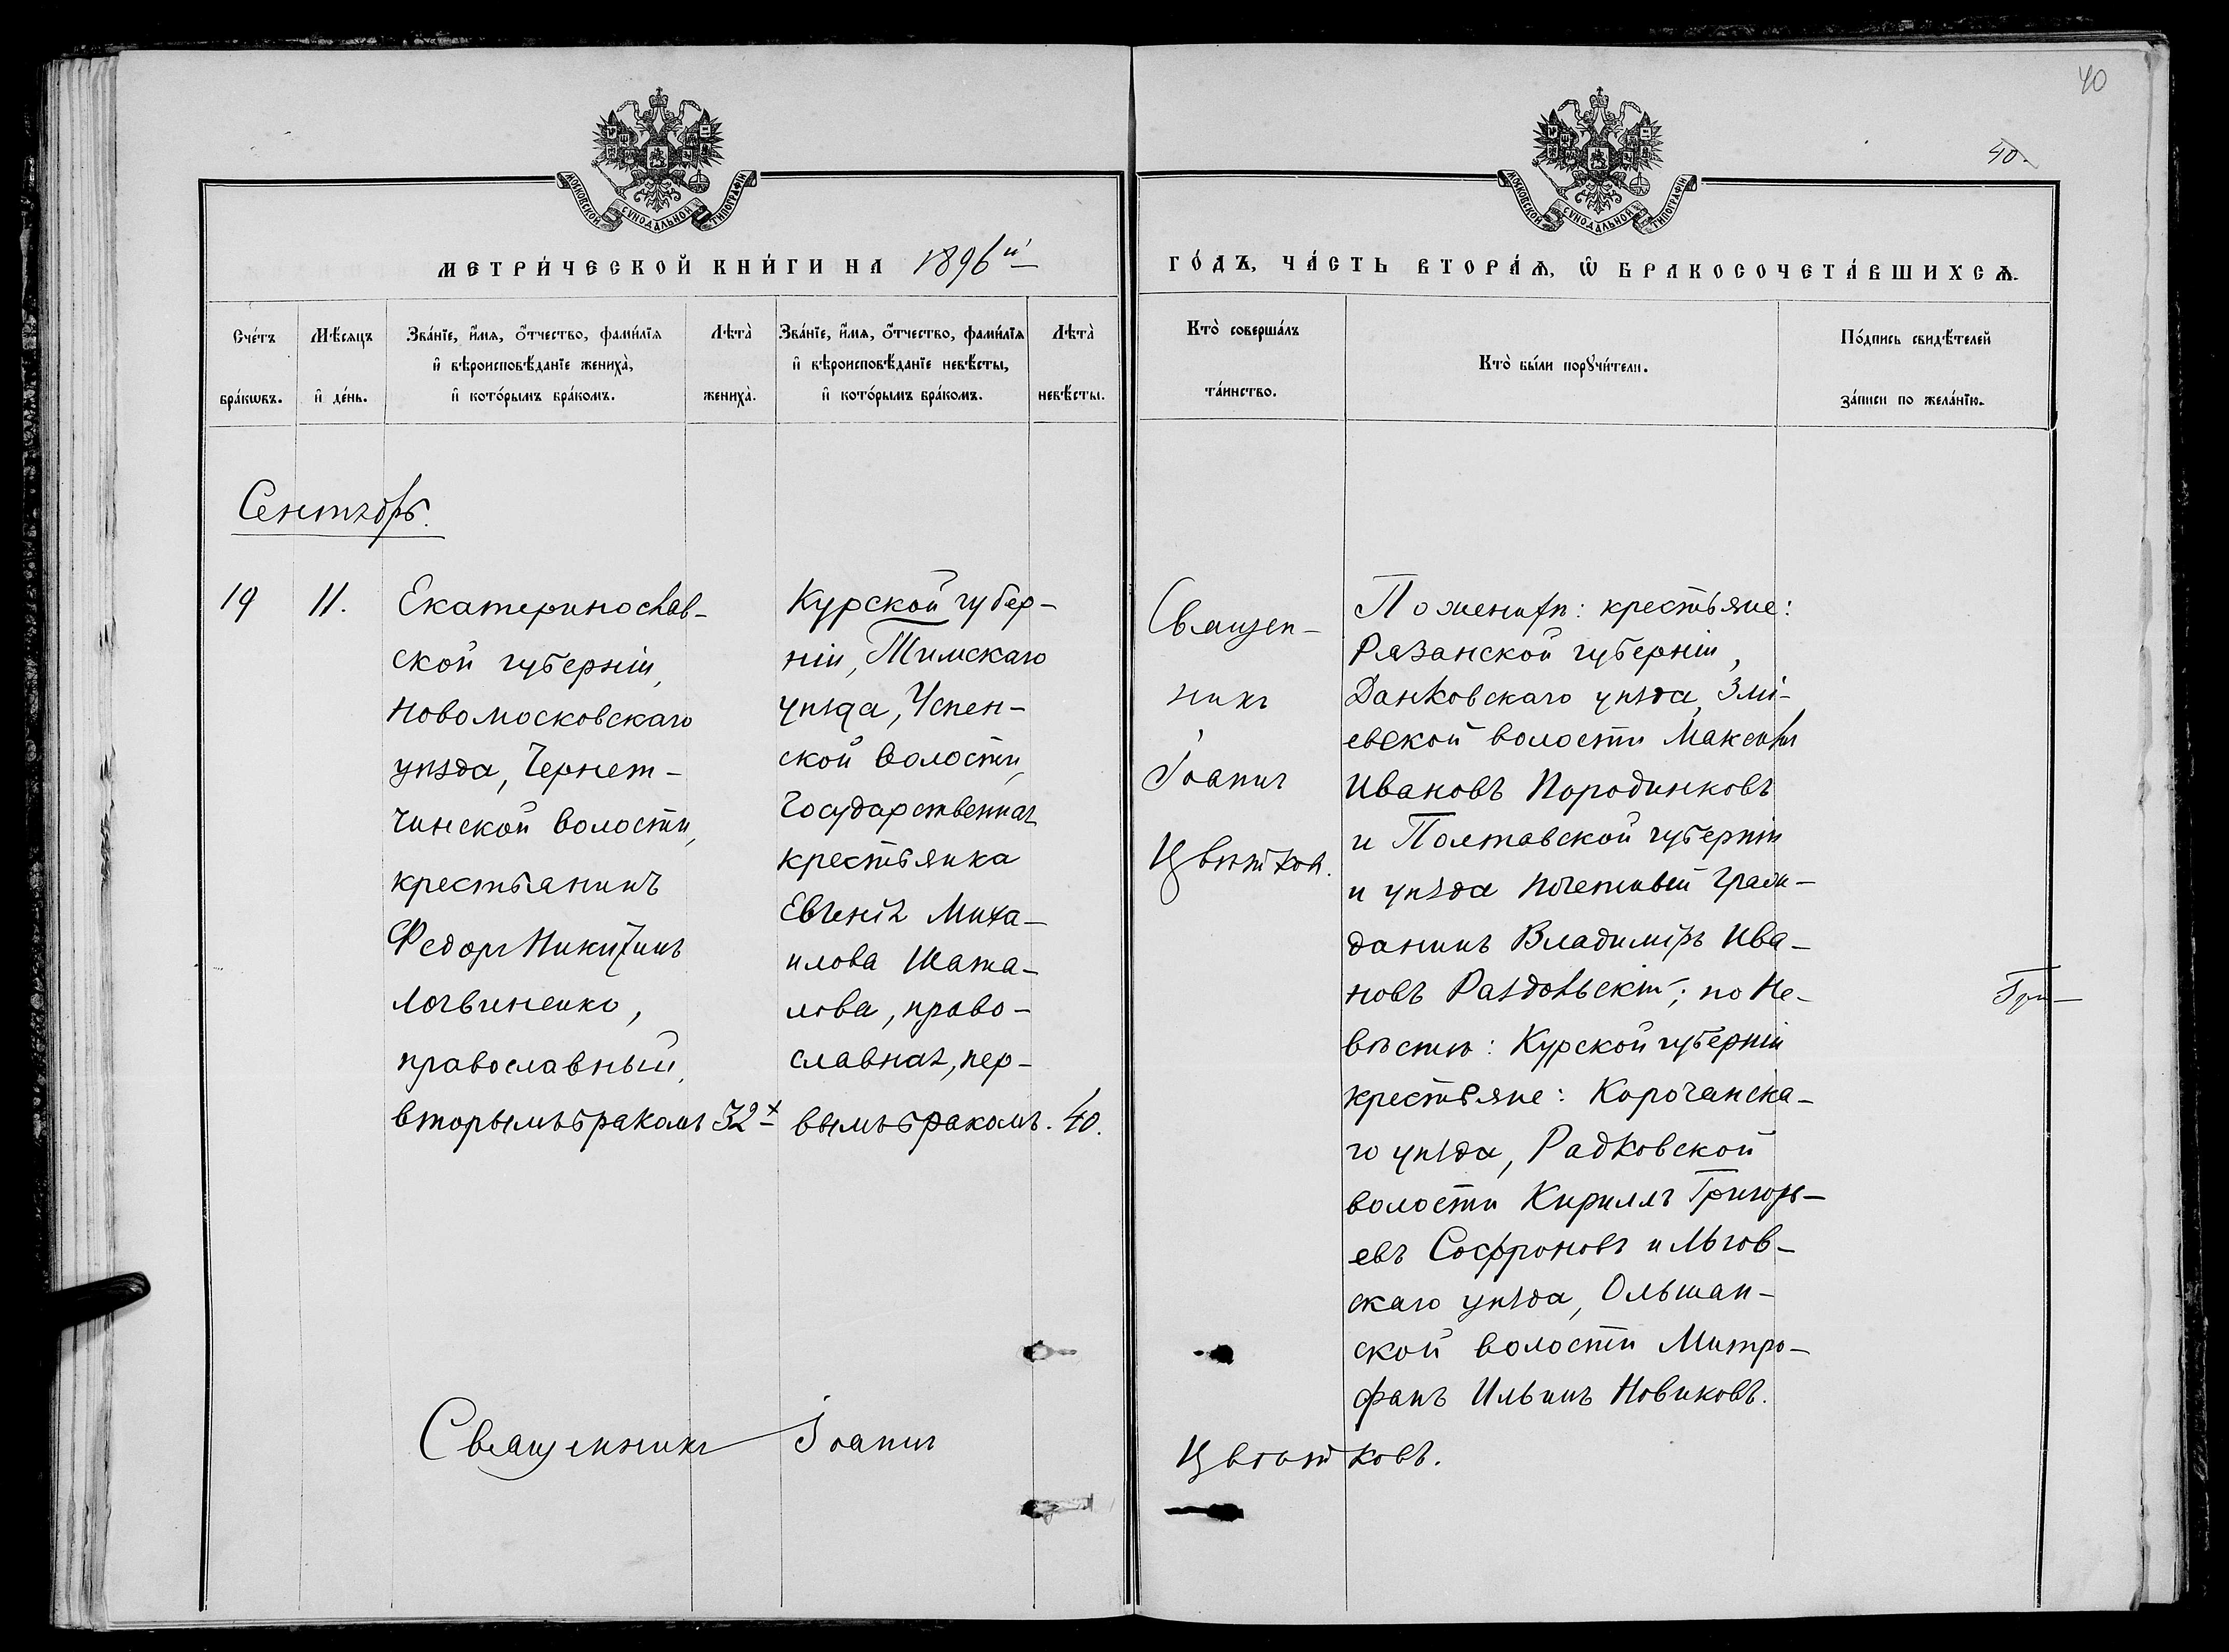 40
40.
МОСКОВСКОЙ СѴНОДАЛЬНОЙ ТИПОГРАФІИ
МОСКОВСКОЙ СѴНОДАЛЬНОЙ ТИПОГРАФІИ
МЕТРИ́ЧЕСКОЙ КНИ́ГИ НА 1896й
ГО́ДЪ, ЧА́СТЬ ВТОРА́Ѧ, Ѡ҆ БРАКОСОЧЕТА́ВШИХСѦ.
Сче́тъ
бра́кѡвъ.
Мѣ́сяцъ
и҆ де́нь.
Зва́нїе, и҆́мя, о҆́тчество, фами́лїя
и҆ вѣроисповѣ́данїе жениха̀,
и҆ кото́рымъ бра́комъ.
Лѣта̀
жениха̀.
Зва́нїе, и҆́мя, о҆́тчество, фами́лїя
и҆ вѣроисповѣ́данїе невѣ́сты,
и҆ кото́рымъ бра́комъ.
Лѣта̀
невѣ́сты.
Кто̀ соверша́лъ
та́инство.
Кто̀ бы́ли порꙋчи́тели.
По́дпись свидѣ́телей
за́писи по жела́нїю.
Сентябрь.
19
11.
Екатеринослав-
ской губерніи,
Новомосковскаго
уѣзда, Чернет-
чинской волости,
крестьянинъ
Федоръ Никитинъ
Логвиненко,
православный,
вторымъ бракомъ
32х
Курской губер-
ніи, Тимскаго
уѣзда, Успен-
ской волости,
Государственная
крестьянка
Евгенія Миха-
илова Шата-
лова, право-
славная, пер-
вымъ бракомъ.
40.
Священ-
никъ
Іоаннъ
Цвѣтков.
По женихѣ: крестьяне:
Рязанской губерніи,
Данковскаго уѣзда, Змі-
евской волости Максимъ
Ивановъ Породинковъ
и Полтавской губерніи
и уѣзда почетный граж-
данинъ Владиміръ Ива-
новъ Раздольскій; по Не-
вѣстѣ: Курской губерніи
крестьяне: Корочанска-
го уѣзда, Радковской
волости Кириллъ Григорь-
евъ Софроновъ и Льгов-
скаго уѣзда, Ольшан-
ской волости Митро-
фанъ Ильинъ Новиковъ.
Священникъ Іоаннъ
Цвѣтковъ.